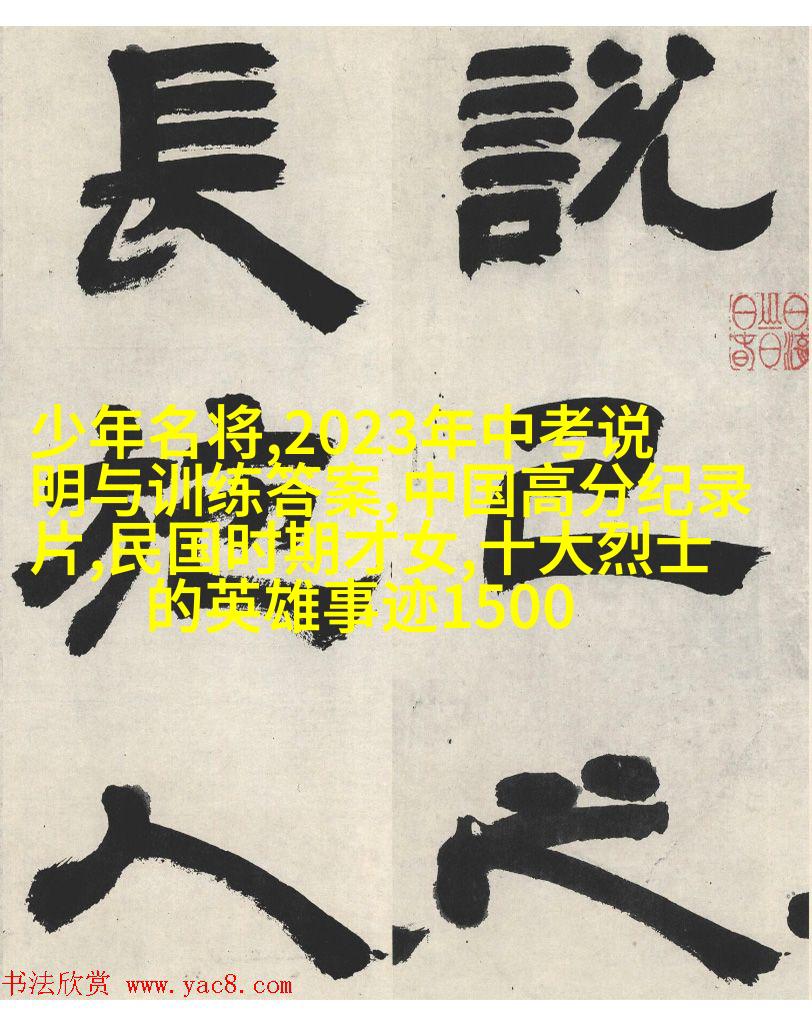 說己之
長施人
少年名将,2023年中考说
明与训练答案,中国高分纪录
片,民国时期才女,十大烈士
的英雄事迹1500
书法欣赏 www.yac8.com